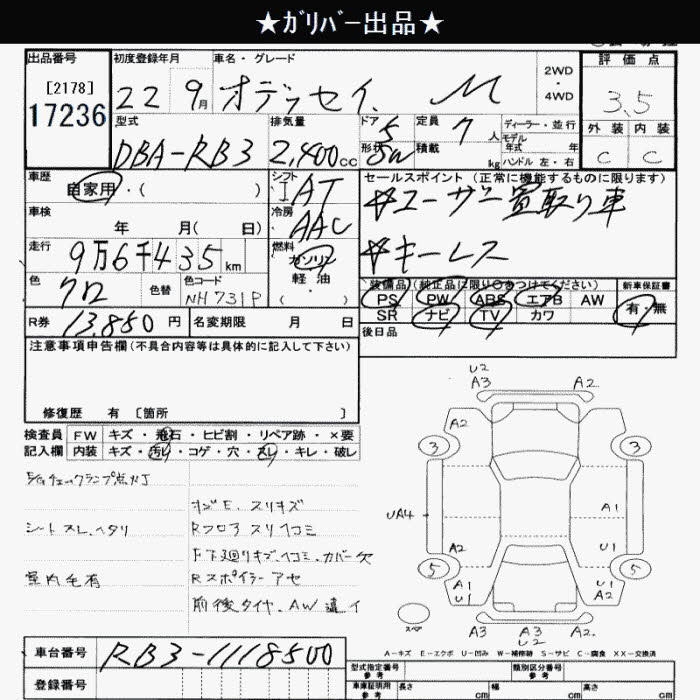 ★ｶﾞﾘﾊﾞｰ出品★
出品番号 初度登録年月 車名・グレード 2WD・4WD 評価点
[2178]
17236 22 9月 オデッセイ M 3.5
型式 排気量 ドア 定員 ディーラー・並行 外装 内装
DBA-RB3 2,400cc 5 7人 モデル年式 年 C C
形状 5W 積載 kg ハンドル 左・右
車歴 自家用・( ) シフト IAT セールスポイント (正常に機能するものに限ります)
車検 年 月( 日) 冷房 AAC ☆ユーザー買取り車
走行 9万6千435km 燃料 ガソリン・軽油・( ) ☆キーレス
色 クロ 色替 色コード NH731P
装備品(純正品に限り○をつけてください) 新車保証書
PS PW ABS エアB AW 有・無
SR ナビ TV カワ
R券 13,850円 名変期限 月 日 後日品
注意事項申告欄(不具合内容等は具体的に記入して下さい)
修復歴 有 [箇所 ]
検査員 FW キズ・飛石・ヒビ割・リペア跡・×要
記入欄 内装 キズ・汚れ・コゲ・穴・スレ・キレ・破レ
E/Gチェックランプ点灯
シートスレ、ヘタリ
室内毛有
ホシE、スリキズ
Rフロアスリヘコミ
F下廻りキズ、ヘコミ、カバー欠
Rスポイラーアセ
前後タイヤ、AW違イ
U2
A3 A2
A2
3 3
UA4 A1
A2 U1
5 5
A1 U1
U1 A2
スペア
A3 U3 A2
U2
A-キズ E-エクボ U-凹み W-補修跡 S-サビ C-腐食 XX-交換済
車台番号 RB3-1118500
登録番号
型式指定番号 参考 類別区分番号 参考
車庫証明用 参考 長さ cm 幅 cm 高さ cm